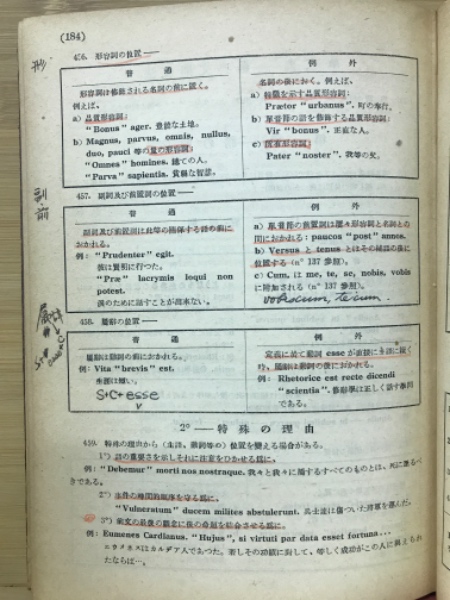 (184)
456. 形容詞の位置 ——
普通
例外
形容詞は修飾される名詞の前に置く。
例えば、
a) 品質形容詞:
"Bonus" ager. 豊饒な土地。
b) Magnus, parvus, omnis, nullus,
duo, pauci 等の量の形容詞:
"Omnes" homines. 總ての人。
"Parva" sapientia. 貧弱な智慧。
名詞の後におく。例えば、
a) 特徴を示す品質形容詞:
Prætor "urbanus". 町の奉行。
b) 單音節の語を修飾する品質形容詞:
Vir "bonus". 正直な人。
c) 所有形容詞:
Pater "noster". 我等の父。
副・前
457. 副詞及び前置詞の位置 ——
普通
例外
副詞及び前置詞は此等の關係する語の前に
おかれる。
例: "Prudenter" egit.
彼は賢明に行つた。
"Præ" lacrymis loqui non
potest.
a) 單音節の前置詞は屢々形容詞と名詞との
間におかれる: paucos "post" annos.
b) Versus と tenus とはその補語の後に
位置する (n° 137 參照)。
c) Cum, は me, te, se, nobis, vobis
に附加される (n° 137 參照)。
vobiscum, tecum
458. 屬詞の位置 ——
普通
例外
屬詞は動詞の前におかれる。
例: Vita "brevis" est.
生涯は短い。
S+C+esse
V
定義に於て動詞 esse が直接に主語に續く
時、屬詞は動詞の後におかれる。
例: Rhetorice est recte dicendi
"scientia". 修辭學は正しく話す學問
である。
2° — 特殊の理由
459. 特殊の理由から (主語、動詞等の) 位置を變へる場合がある。
1°) 語の重要さを示しそれに注意をひかせる爲に。
例: "Debemur" morti nos nostraque. 我々と我々に屬するすべてのものとは、死に歸るべ
きである。
2°) 事件の時間的順序を守る爲に。
"Vulneratum" ducem milites abstulerunt. 兵士達は傷ついた將軍を運んだ。
3°) 前文の最後の觀念に後の命題を結合させる爲に。
例: Eumenes Cardianus. "Hujus", si virtuti par data esset fortuna...
エウメネスはカルデア人であつた。若しその功績に對して、等しく成功がこの人に與えられ
たならば…。